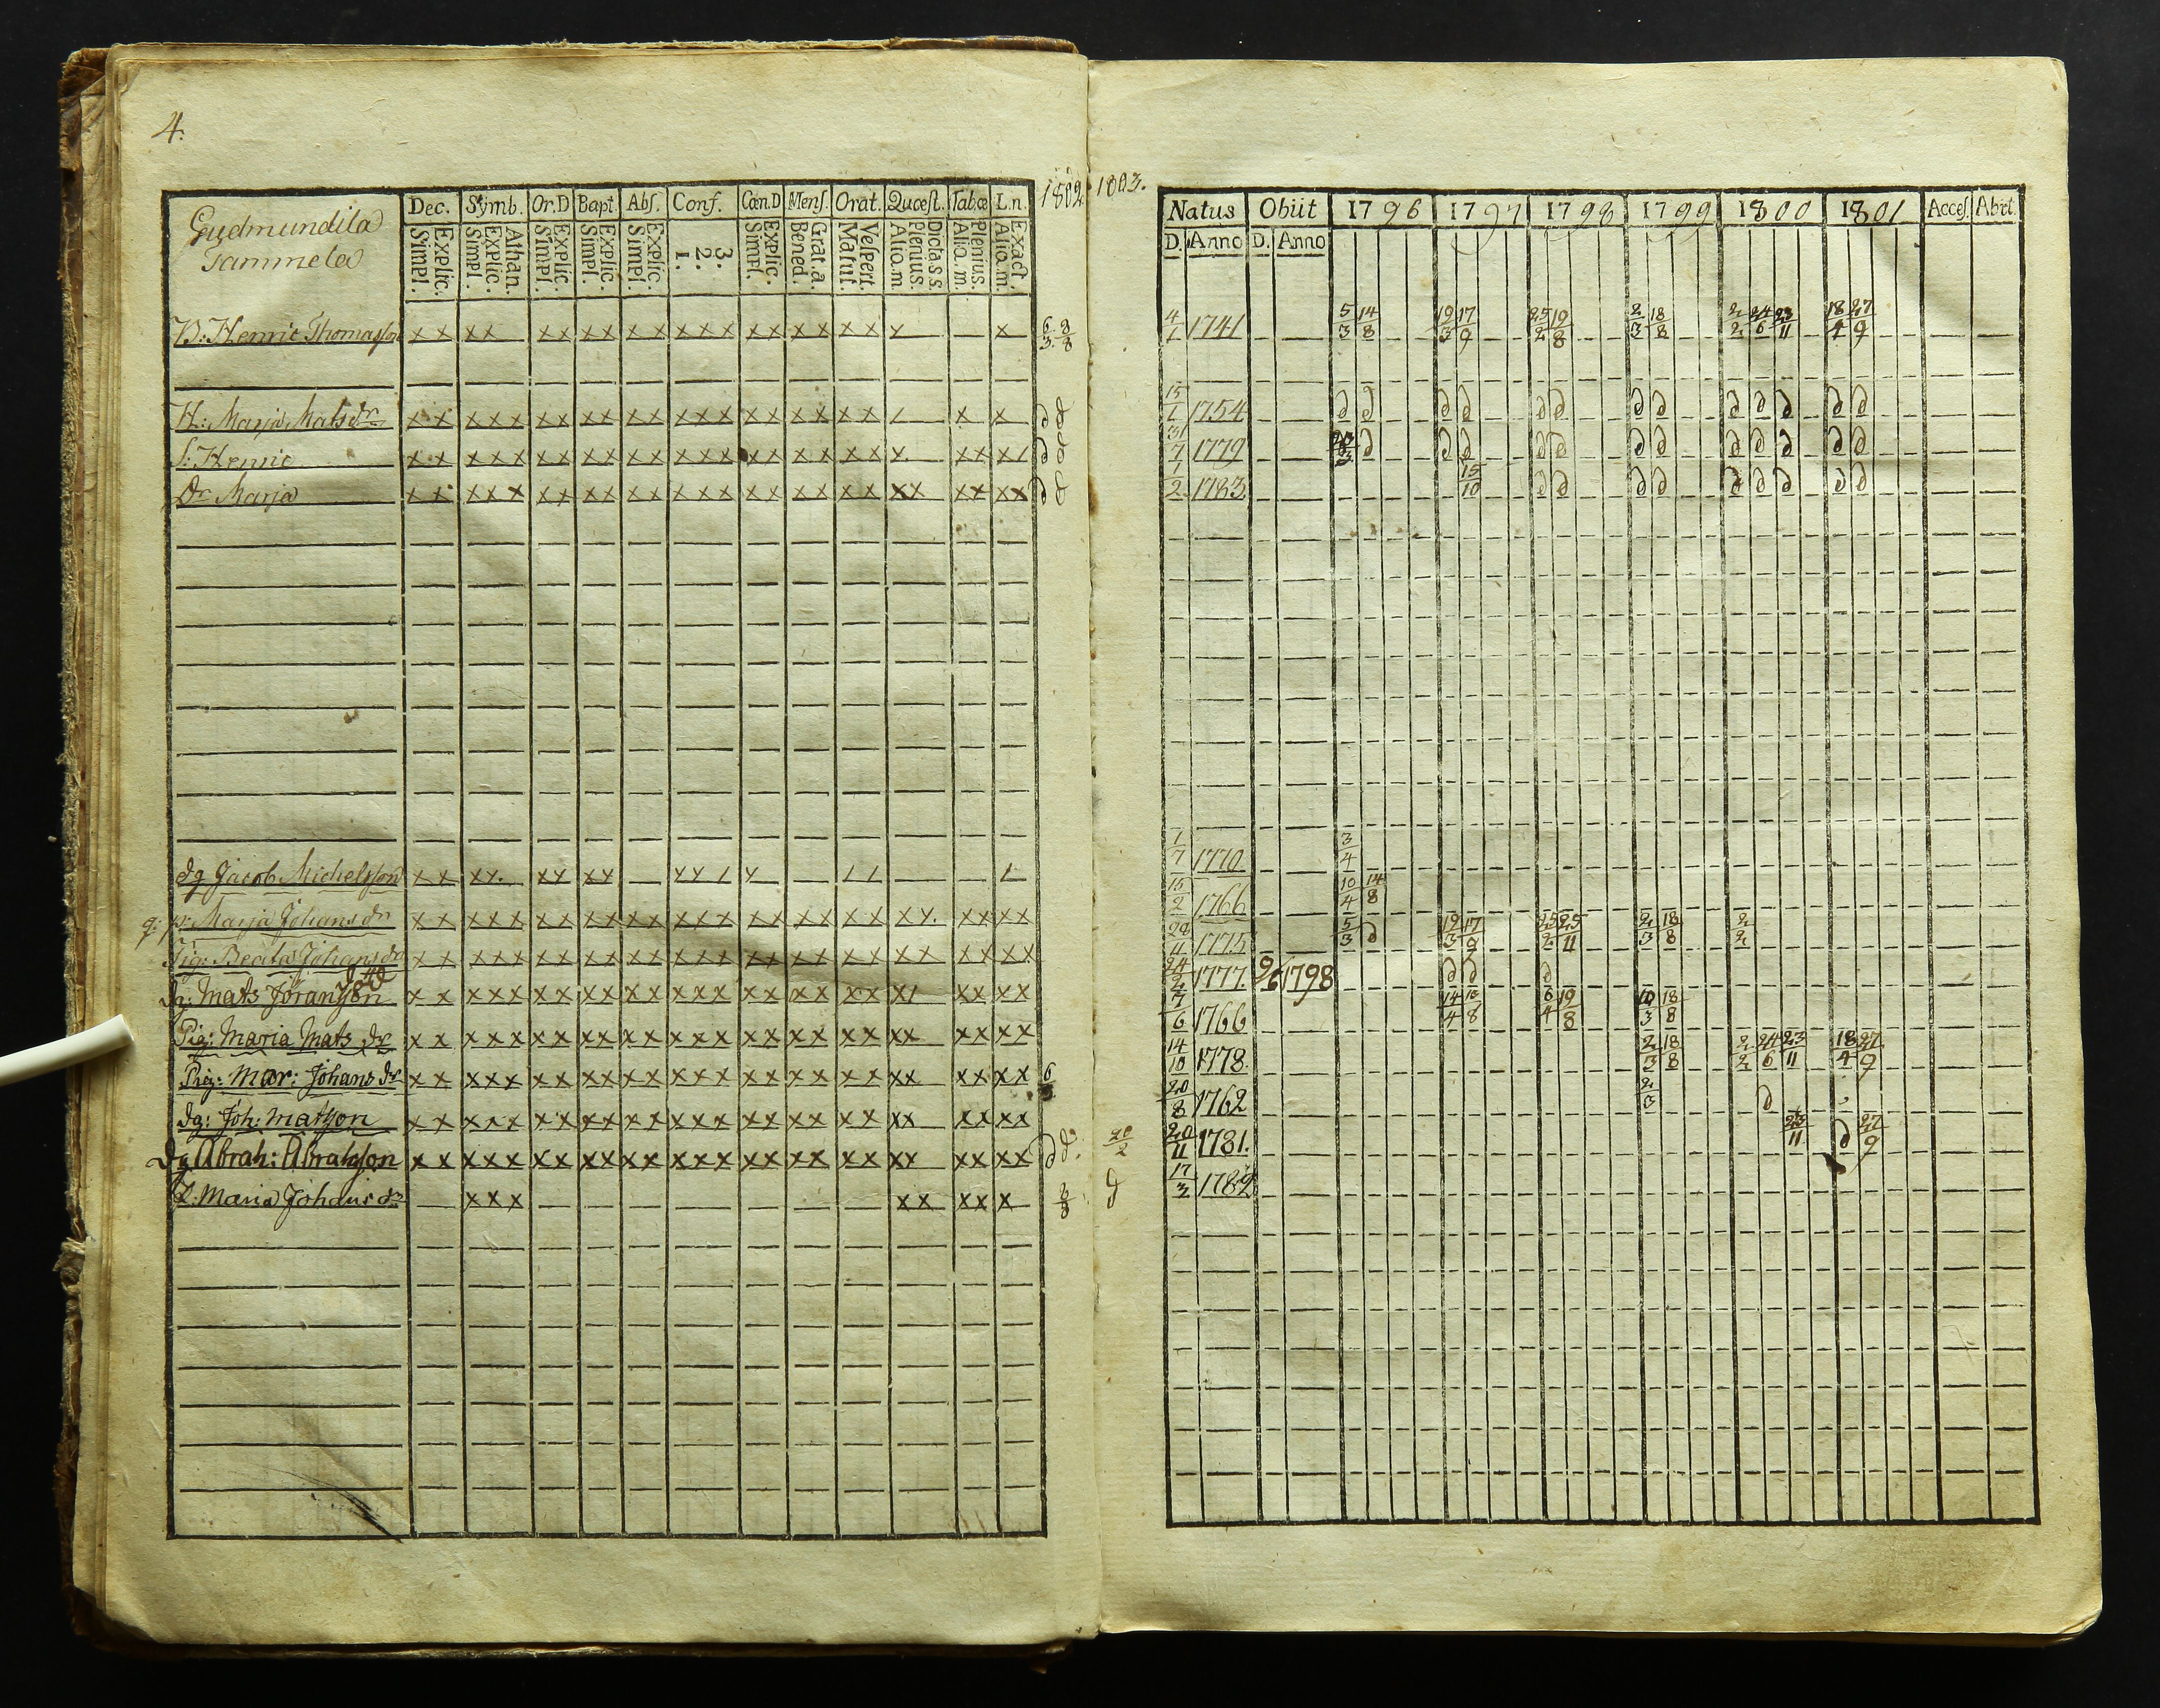 4.
1802 1803.
Dec. Symb. Or.D Bapt. Abs. Conf. Cœn.D Mens. Orat. Quæst. Tab.œ L.n.
Gudmundila
Tammela
Explic. Simpl. Athan. Explic. Simpl. Explic. Simpl. Explic. Simpl. Explic. Simpl. 3. 2. 1. Explic. Simpl. Grat.a. Bened. Vespert. Matut. Dicta s s. Plenius. Aliq.m. Plenius. Aliq.m. Exact. Aliq.m.
B: Henric Thomasson x x x x x x x x x x x x x x x x x x x x x 6/3 8/8
H: Marja Mats dr x x x x x x x x x x x x x x x x x x x x / x x
S: Henric x x x x x x x x x x x x x x x x x x x x x x x x /
Dr Marja x x x x x x x x x x x x x x x x x x x x x x x x x x
dg Jacob Michelsson x x x x x x x x x x / x / / /
q: p: Marja Johans dr x x x x x x x x x x x x x x x x x x x x x x x x x x
Pig: Beata Johans dr x x x x x x x x x x x x x x x x x x x x x x x x x x
dg: Mats Göransson x x x x x x x x x x x x x x x x x x x x x / x x x x
Pig: Maria Mats dr x x x x x x x x x x x x x x x x x x x x x x x x x x
Pig: Mar: Johans dr x x x x x x x x x x x x x x x x x x x x x x x x x x 6
dg: Joh: Matsson x x x x x x x x x x x x x x x x x x x x x x x x x x
Dg Abrah: Abrahsson x x x x x x x x x x x x x x x x x x x x x x x x x x d d: 20/2
Maria Johans dr x x x x x x x x
Natus Obiit 1796 1797 1798 1799 1800 1801 Acces. Abit.
D. Anno D. Anno
4/1 1741 5/3 14/8 19/3 17/9 25/2 19/8 2/3 18/8 2/2 24/6 23/11 18/4 27/9
15/1 1754 d d d d d d d d d d d d d
31/7 1779 d d d d d d d d d d d d
1/2 1783 15/10 d d d d d d d d d
1/7 1770 3/4
15/2 1766 10/4 14/8
29/11 1775 5/3 d 19/3 17/9 25/2 25/11 2/3 18/8 2/2
24/2 1777. 9/6 1798 d d d
7/6 1766 14/4 10/8 6/4 19/8 10/3 18/8
14/10 1778 2/3 18/8 2/2 24/6 23/11 18/4 27/9
20/8 1762 2/3 d
20/11 1781. 23/11 d 27/9
17/3 1782